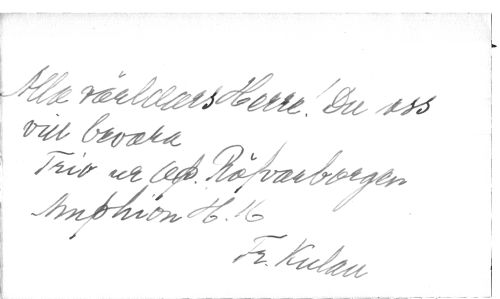 Alla världars Herre! Du oss
vill bevara
Trio ur Op. Röfvarborgen
Amphion H. 16
Fr. Kulau